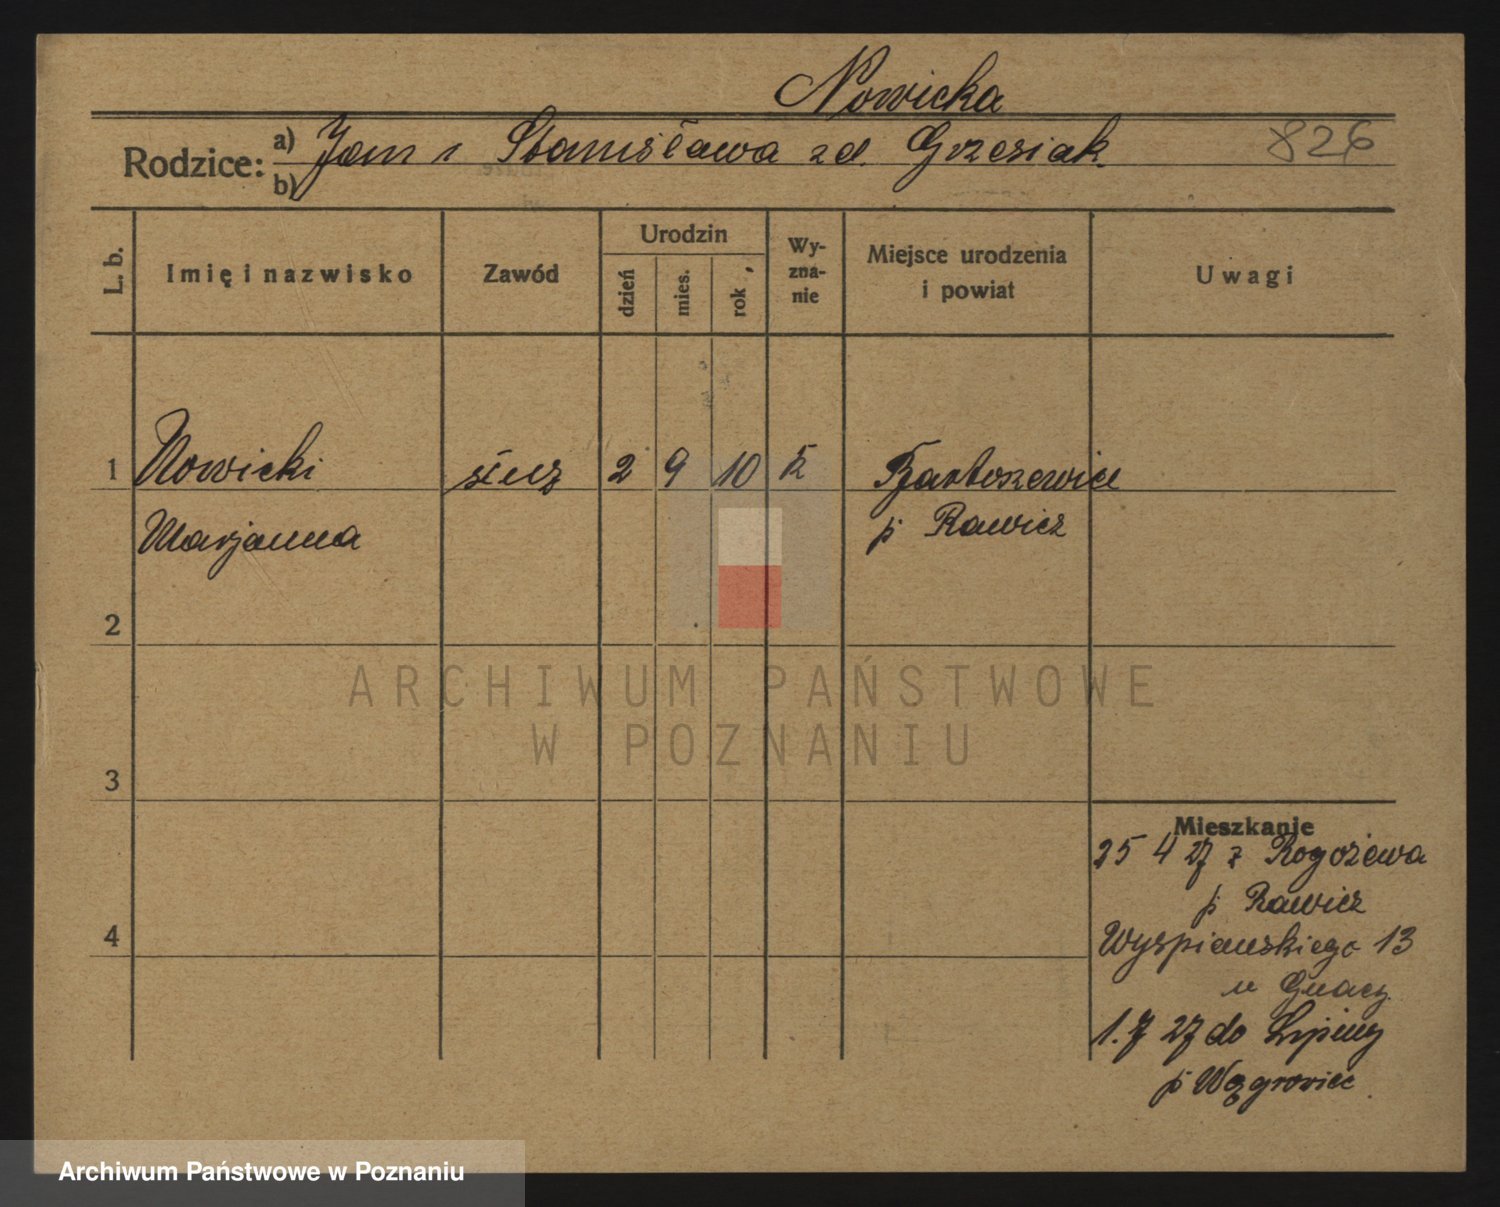 Nowicka
Rodzice: a) Jan i Stanisława zd. Grzesiak 826
b)
L. b. Imię i nazwisko Zawód Urodzin dzień mies. rok Wy-zna-nie Miejsce urodzenia i powiat Uwagi
1 Nowicki służ 2 9 10 k Bartoszewice
Marjanna p Rawicz
2
ARCHIWUM PAŃSTWOWE
W POZNANIU
3
Mieszkanie
25 4 27 z Rogożewa
p Rawicz
4
Wyspiańskiego 13
u
1.7 27 do Lipiny
p Wągrowiec
Archiwum Państwowe w Poznaniu